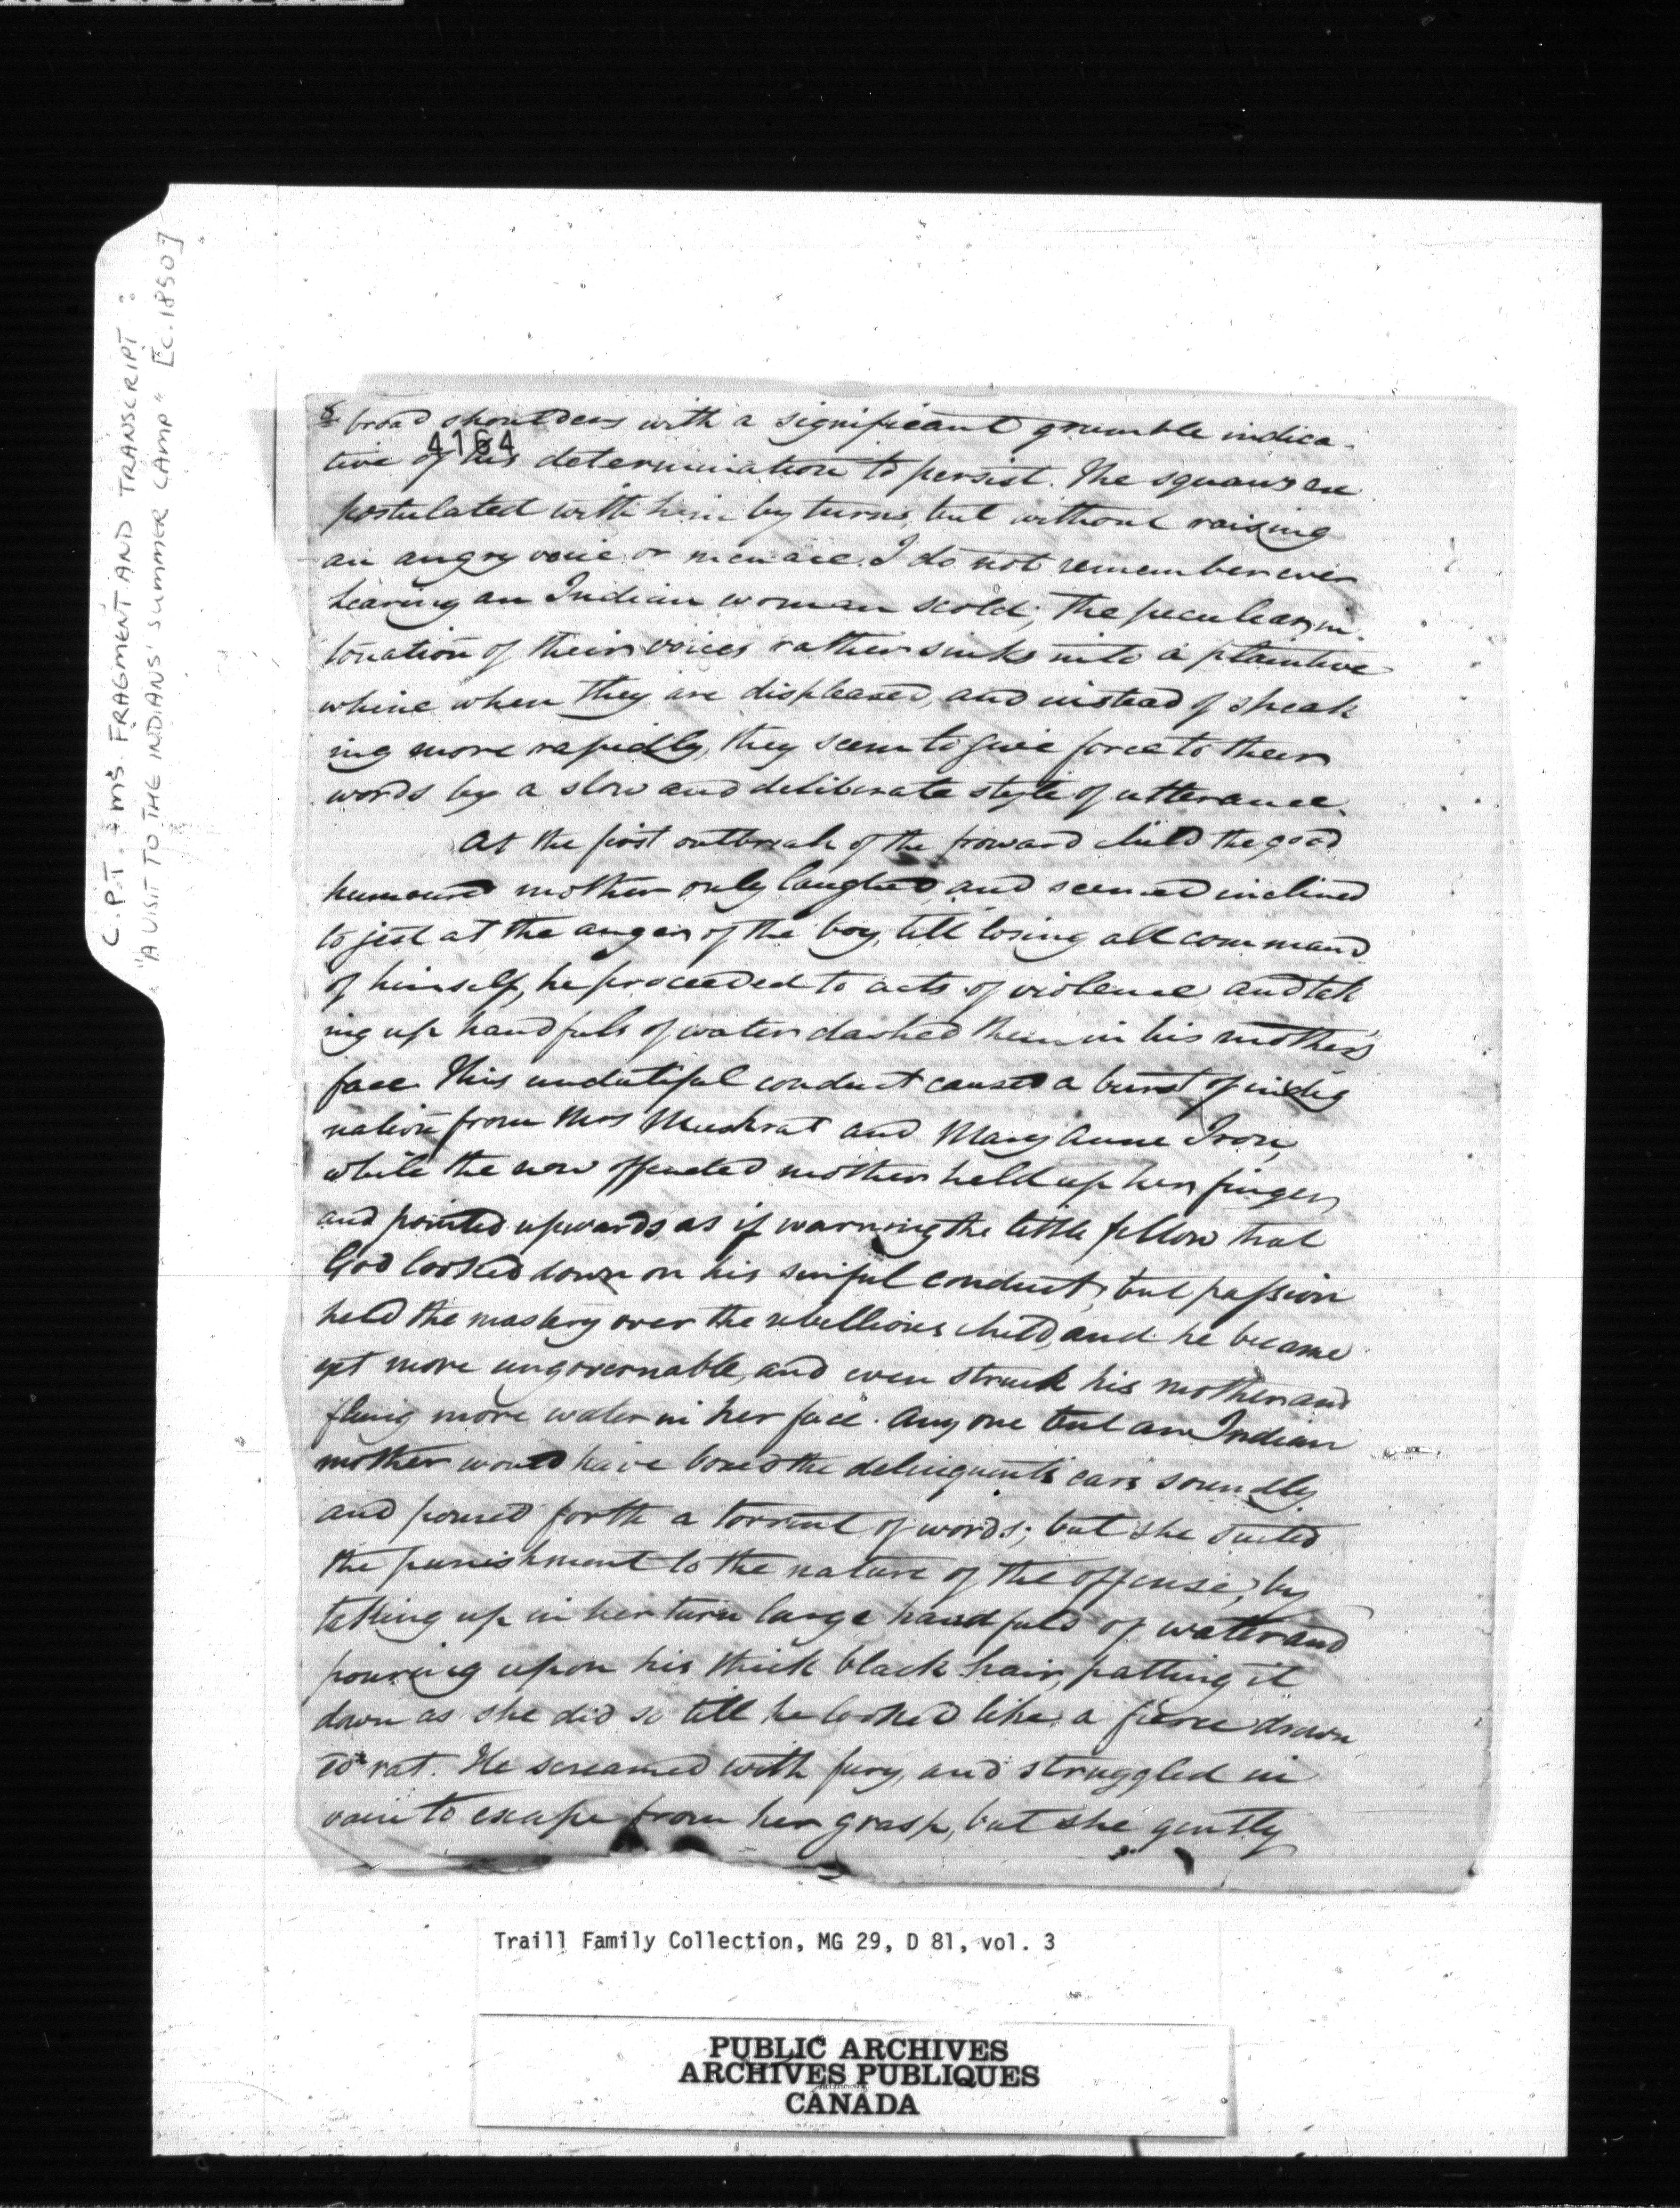 C.P.T. ms. FRAGMENT AND TRANSCRIPT:
"A VISIT TO THE INDIANS' SUMMER CAMP" [c. 1850]
8
broad shoulders with a significant grumble indica-
4164
tive of his determination to persist. The squaws ex
postulated with him by turns, but without raising
an angry voice or menace. I do not remember ever
hearing an Indian woman scold; the peculiar in-
tonation of their voices rather sinks into a plaintive
whine when they are displeased, and instead of speak
ing more rapidly, they seem to give force to their
words by a slow and deliberate style of utterance.
At the first outbreak of the froward child the good
humoured mother only laughed, and seemed inclined
to jest at the anger of the boy, till losing all command
of himself, he proceeded to acts of violence and tak
ing up handfuls of water dashed them in his mother's
face. This undutiful conduct caused a burst of indig
nation from Mrs Muskrat and Mary Anne Iron,
while the now offended mother held up her finger
and pointed upwards as if warning the little fellow that
God looked down on his sinful conduct, but passion
held the mastery over the rebellious child, and he became
yet more ungovernable, and even struck his mother and
flung more water in her face. Any one but an Indian
mother would have boxed the delinquent's ears soundly
and poured forth a torrent of words; but she suited
the punishment to the nature of the offense, by
taking up in her turn large handfuls of water and
pouring upon his thick black hair, patting it
down as she did so till he looked like a fierce drown
ed rat. He screamed with fury, and struggled in
vain to escape from her grasp, but she gently
Traill Family Collection, MG 29, D 81, vol. 3
PUBLIC ARCHIVES
ARCHIVES PUBLIQUES
CANADA